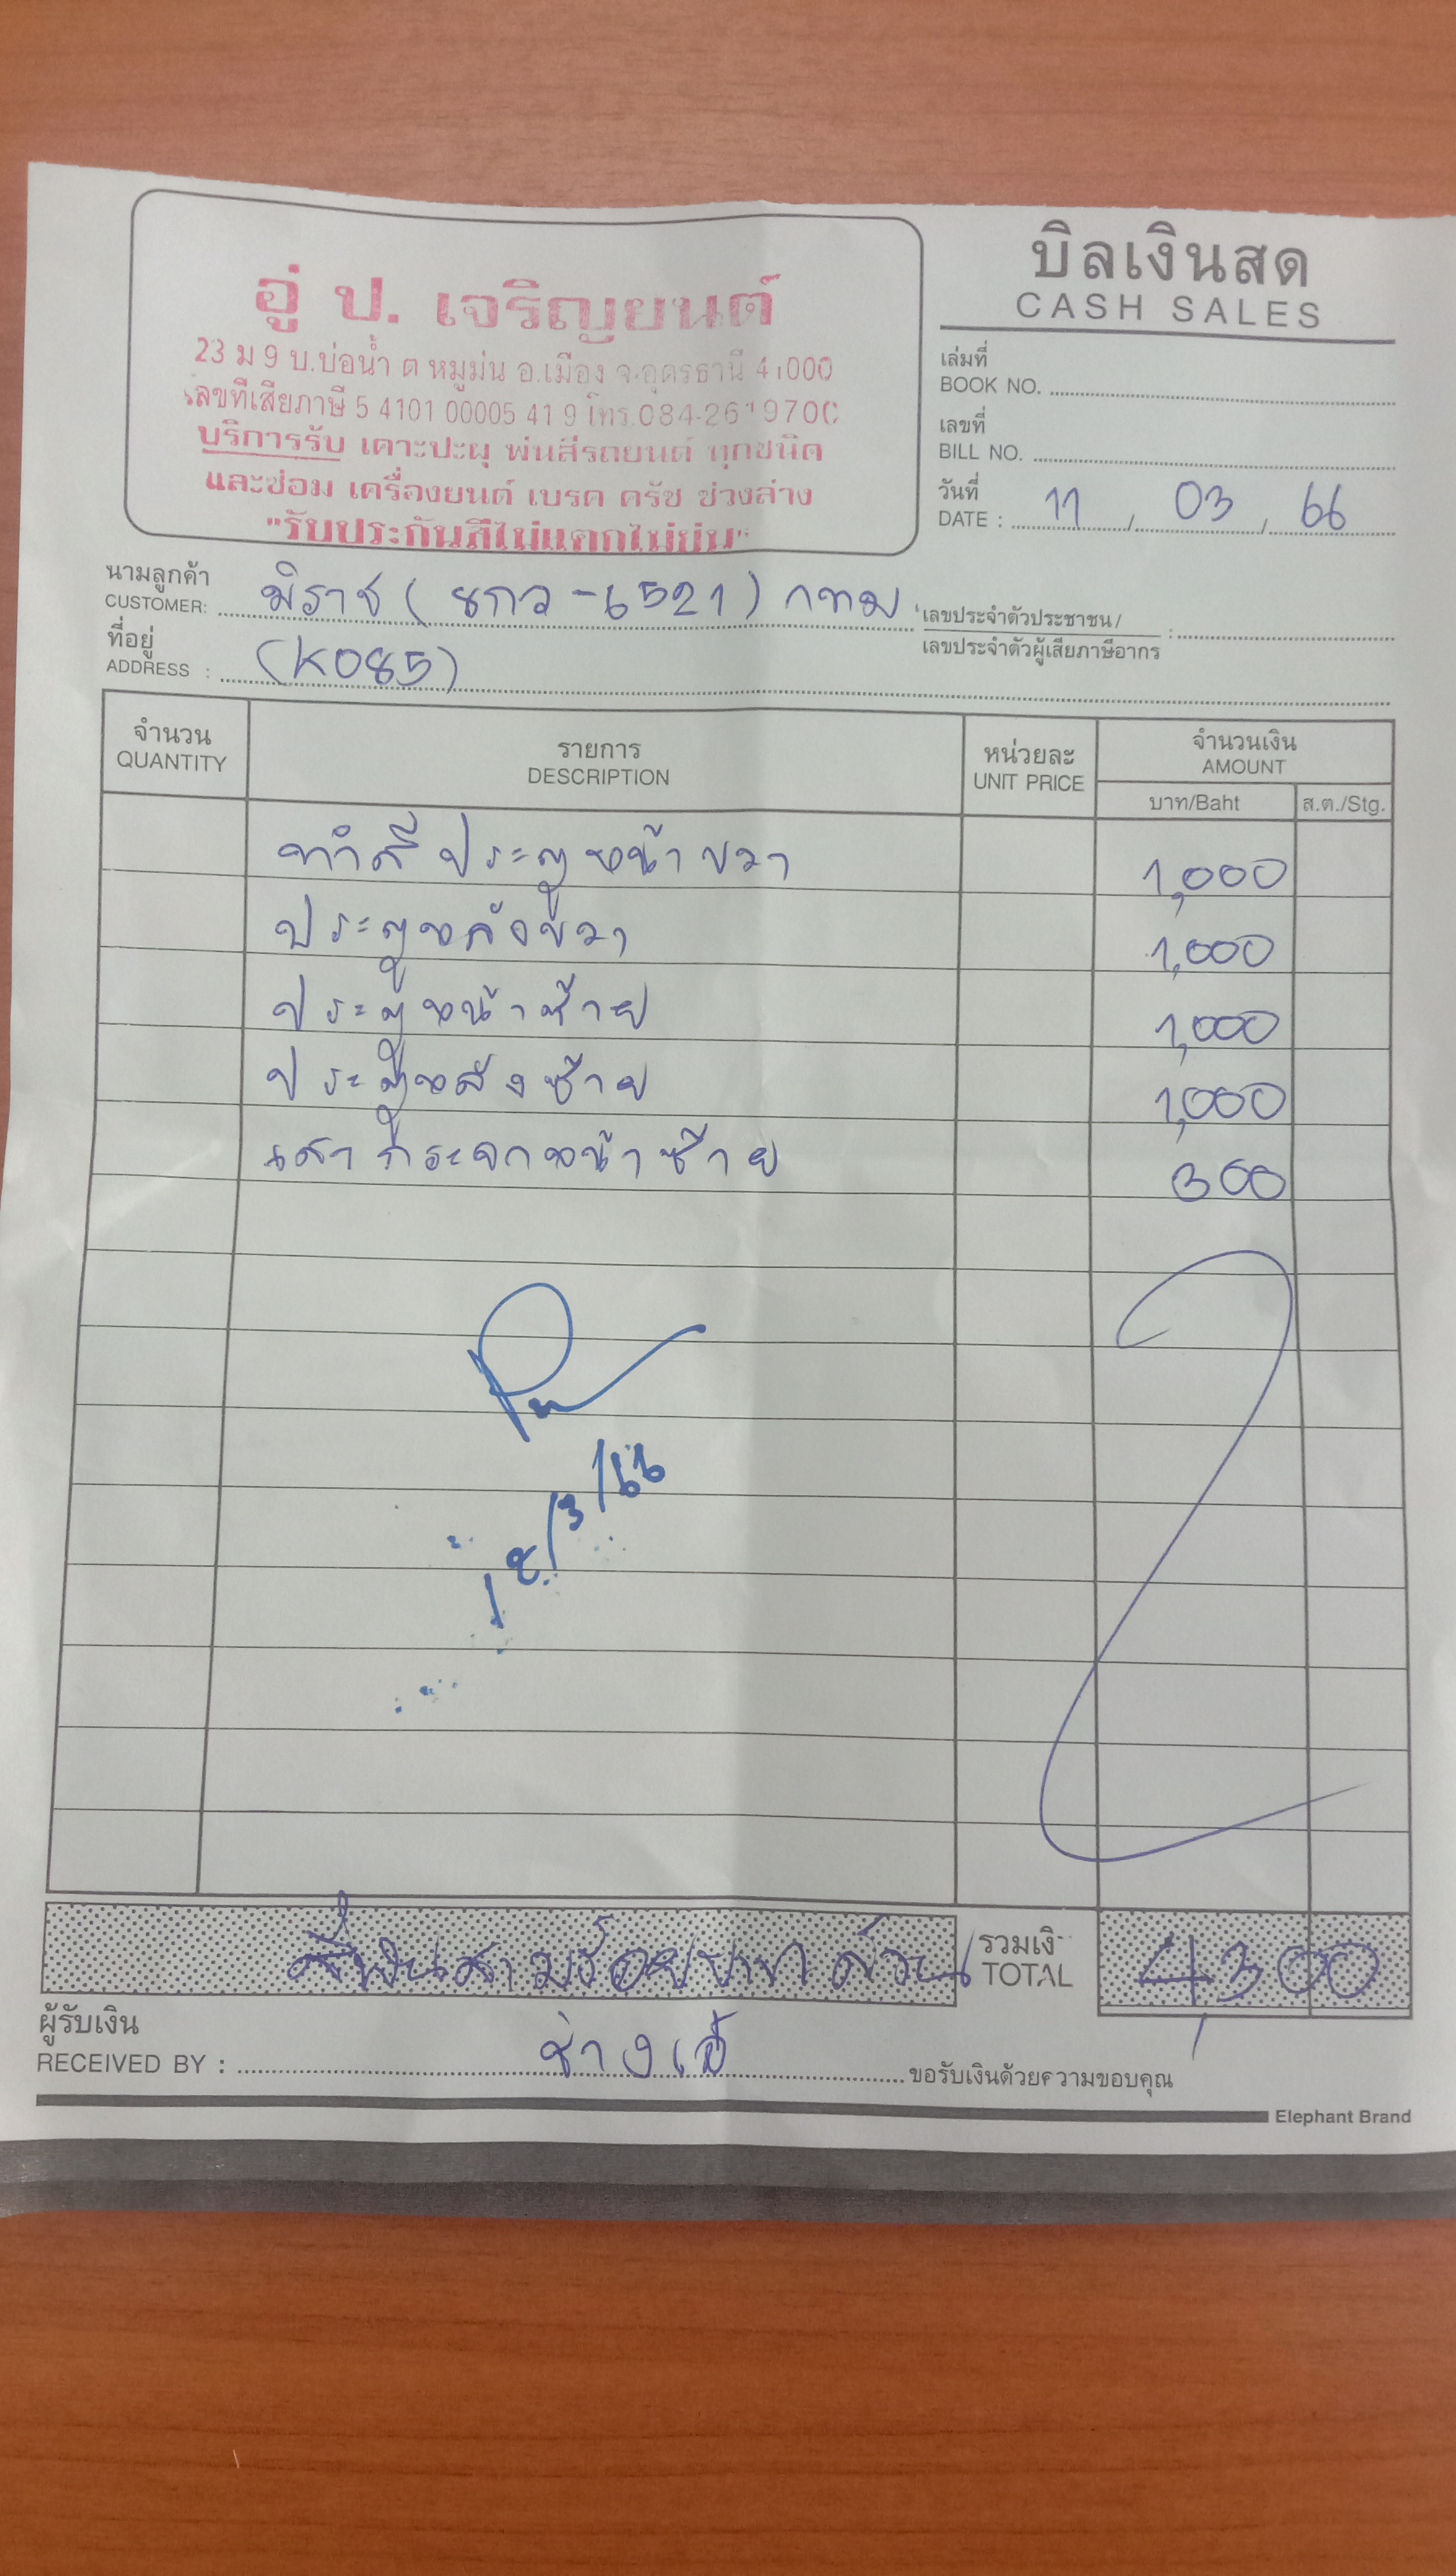 บิลเงินสด
CASH SALES
อู่ ป. เจริญยนต์
23 ม 9 บ.บ่อน้ำ ต หมูม่น อ.เมือง จ.อุดรธานี 41000
เลขที่เสียภาษี 5 4101 00005 41 9 โทร.084-261 9700
บริการรับ เคาะปะผุ พ่นสีรถยนต์ ทุกชนิด
และซ่อม เครื่องยนต์ เบรค ครัช ช่วงล่าง
"รับประกันสีไม่แตกไม่ย่น"
เล่มที่
BOOK NO.
เลขที่
BILL NO.
วันที่
DATE : 11 / 03 / 66
นามลูกค้า
CUSTOMER: มิราช (8กว-6521) กทม.
เลขประจำตัวประชาชน/
เลขประจำตัวผู้เสียภาษีอากร :
ที่อยู่
ADDRESS : (K085)
จำนวน รายการ หน่วยละ จำนวนเงิน
QUANTITY DESCRIPTION UNIT PRICE AMOUNT
บาท/Baht ส.ต./Stg.
ทำสี ประตูหน้าขวา 1,000
ประตูหลังขวา 1,000
ประตูหน้าซ้าย 1,000
ประตูหลังซ้าย 1,000
เสากระจกหน้าซ้าย 300
12/3/66
สี่พันสามร้อยบาทถ้วน รวมเงิ TOTAL 4,300
ผู้รับเงิน
RECEIVED BY : ช่างเอ้ ขอรับเงินด้วยความขอบคุณ
Elephant Brand